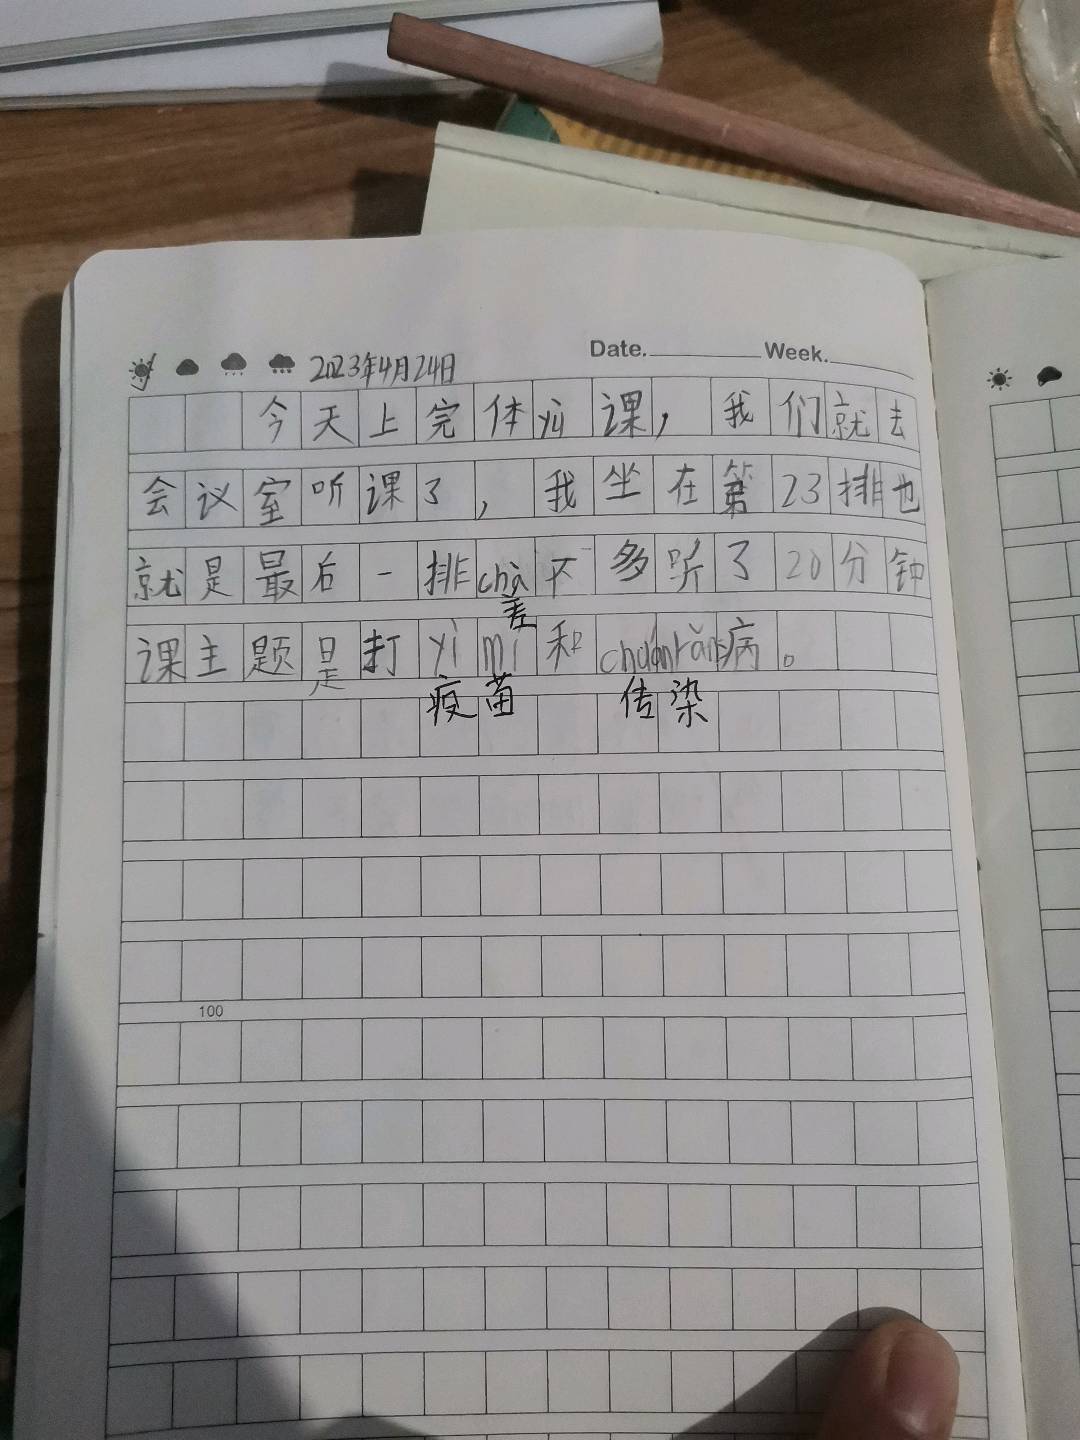 2023年4月24日 Date. Week.
今天上完体yù课，我们就去
会议室听课了，我坐在第23排也
就是最后一排chà不多听了20分钟
差
课主题是打yì mí和chuánrǎn病。
疫苗 传染
100